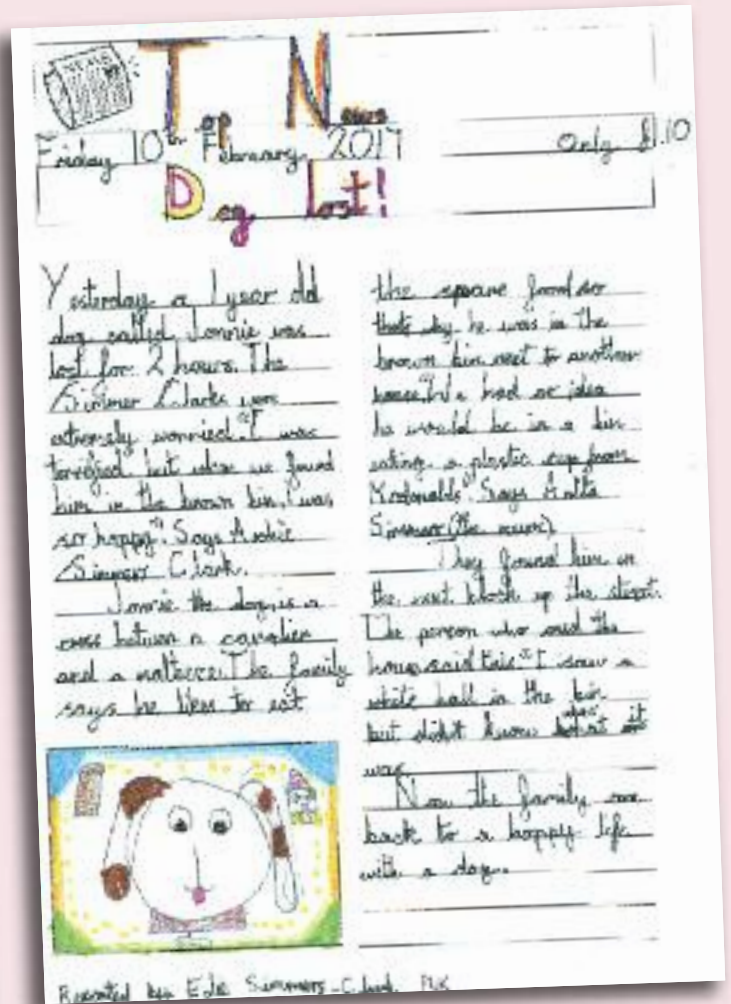 NEWS
Top News
Friday 10th February 2017
Only £1.10
Dog lost!
Yesterday a 1 year old
dog called Jonnie was
lost for 2 hours. The
Simmer Clarks were
extremely worried. "I was
terrified but when we found
him in the brown bin, I was
so happy". Says
Simmers Clark.
Jonnie the dog, is a
cross between a cavalier
and a The family
says he likes to eat
the spare food so
thats why he was in the
brown bin next to another
house. "We had no idea
he would be in a bin
eating a plastic cup from
Mcdonalds". Says
Simmers (the mum)
They found him in
the next block up the street.
The person who owned the
house said this "I saw a
white ball in the bin
but didn't know what it
was
Now the family are
back to a happy life
with a dog.
Reported by Edie Simmers-Clark